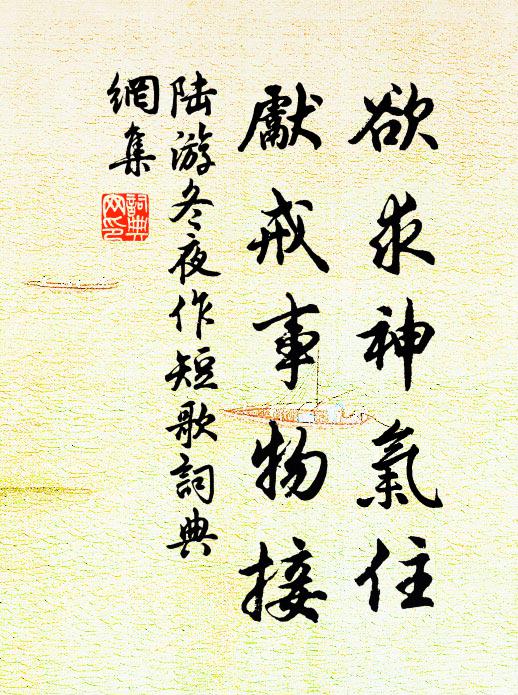 欲求神氣住
厭戒事物接
陸游冬夜作短歌詞典
網集
詞典
网印